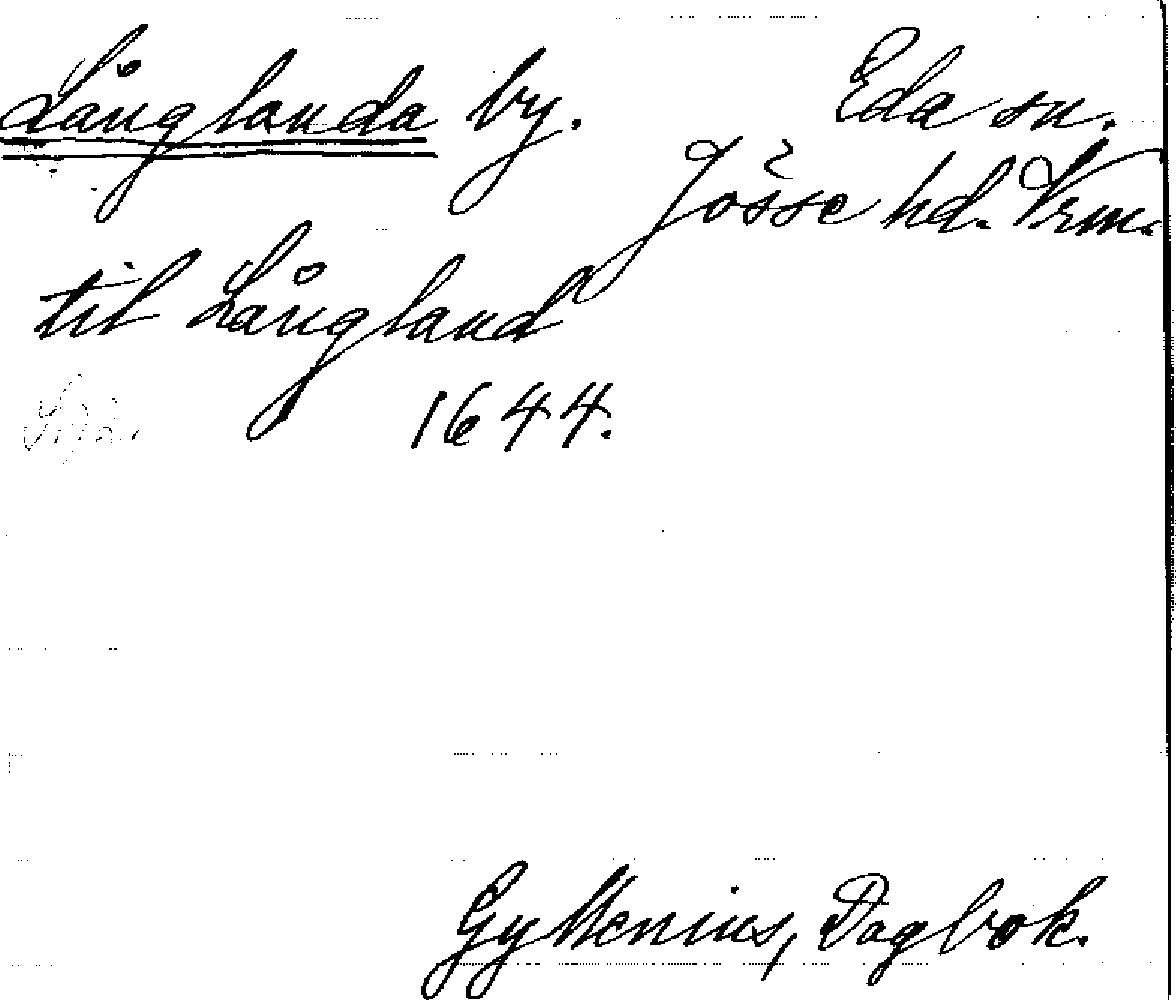 Långlanda by. Eda sn.
Jösse hd. Vrm.
til Långland
1644.
Gyllenius, Dagbok.